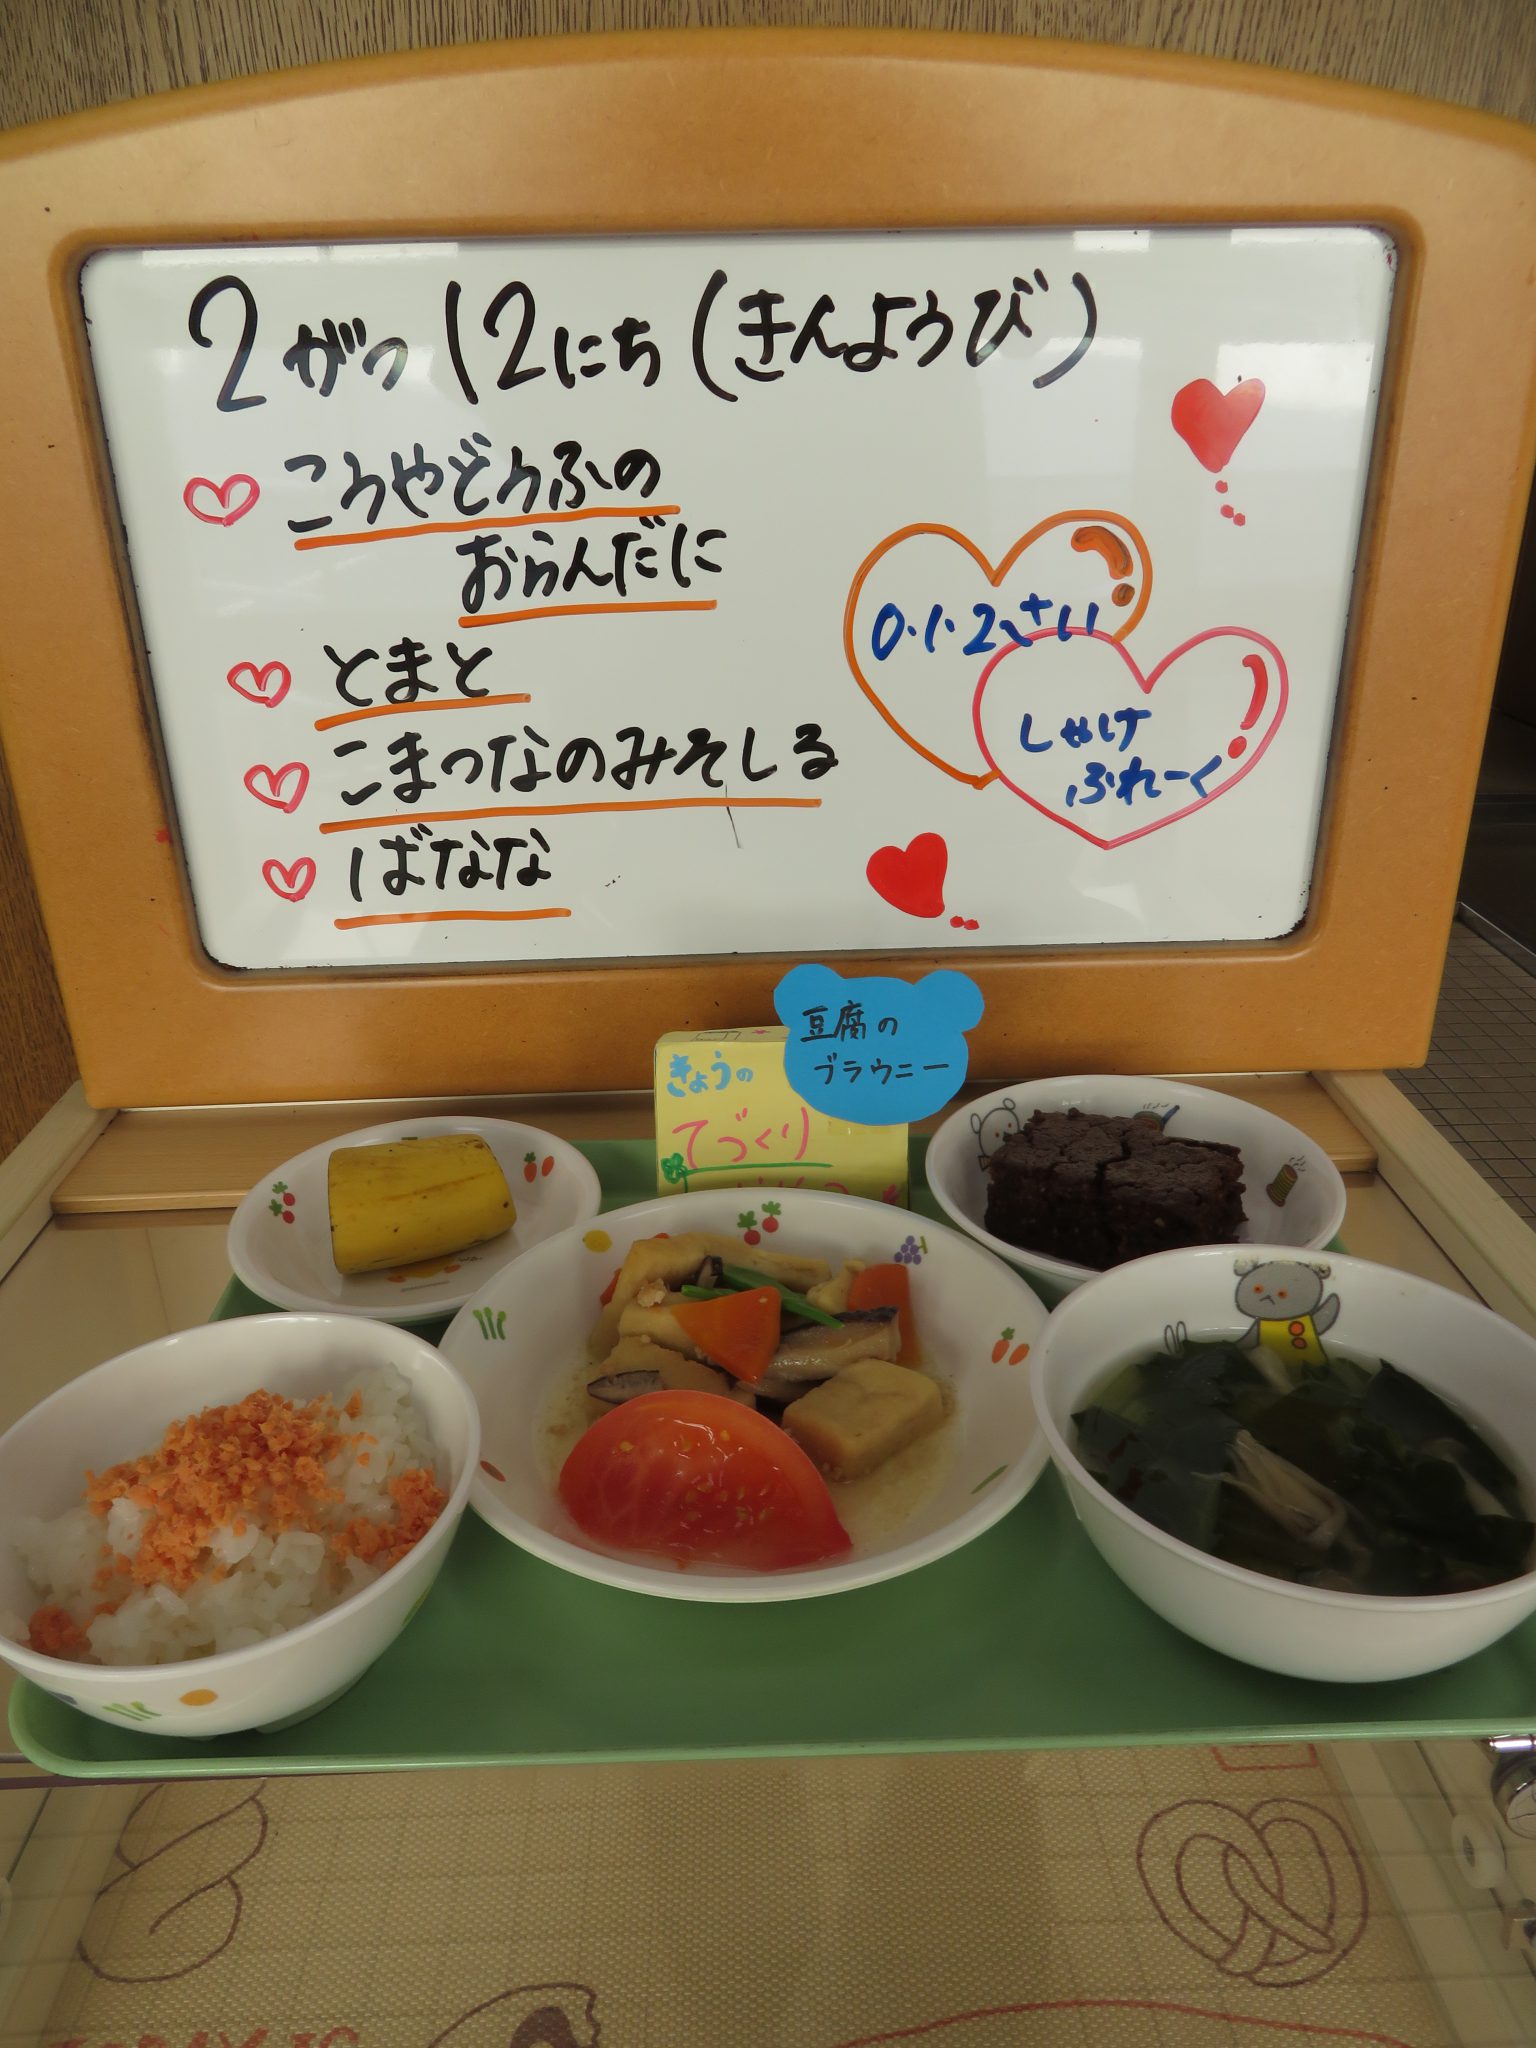 2がつ12にち(きんようび)
こうやどうふの
おらんだに
とまと
こまつなのみそしる
ばなな
0.1.2さい
しゃけ
ふれーく
豆腐の
ブラウニー
きょうの
てづくり